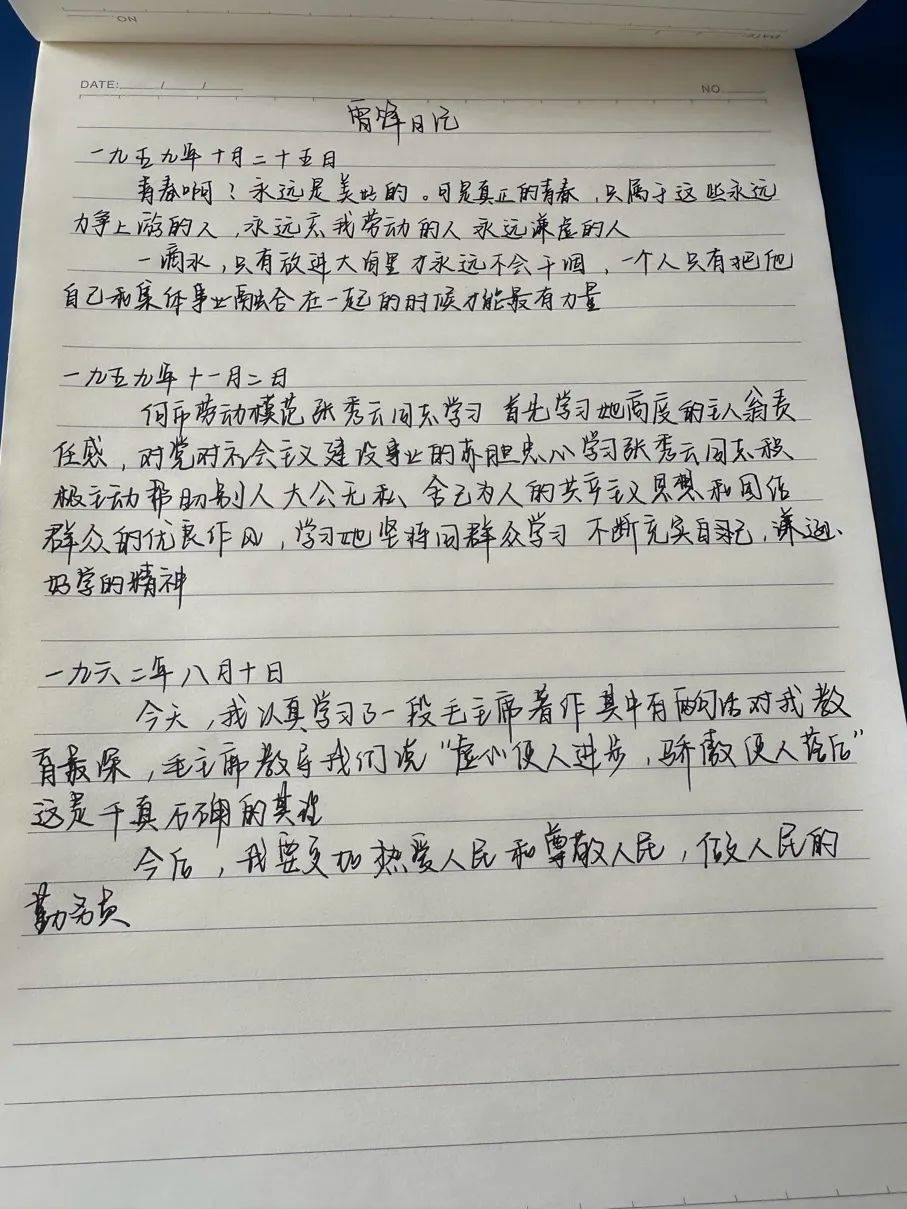 ON
DATE:
DATE: / /
NO
雷锋日记
一九五九年十月二十五日
青春啊！永远是美好的。可是真正的青春，只属于这些永远
力争上游的人，永远忘我劳动的人 永远谦虚的人
一滴水，只有放进大海里才永远不会干涸，一个人只有把他
自己和集体事业融合在一起的时候才能最有力量
一九五九年十一月二日
向市劳动模范张秀云同志学习 首先学习她高度的主人翁责
任感，对党对社会主义建设事业的赤胆忠心学习张秀云同志积
极主动帮助别人大公无私、舍己为人的共产主义思想和团结
群众的优良作风，学习她坚持向群众学习 不断充实自己，谦逊、
好学的精神
一九六二年八月十日
今天，我认真学习了一段毛主席著作 其中有两句话对我教
育最深，毛主席教导我们说“虚心使人进步，骄傲使人落后”
这是千真万确的真理
今后，我要更加热爱人民和尊敬人民，做人民的
勤务员